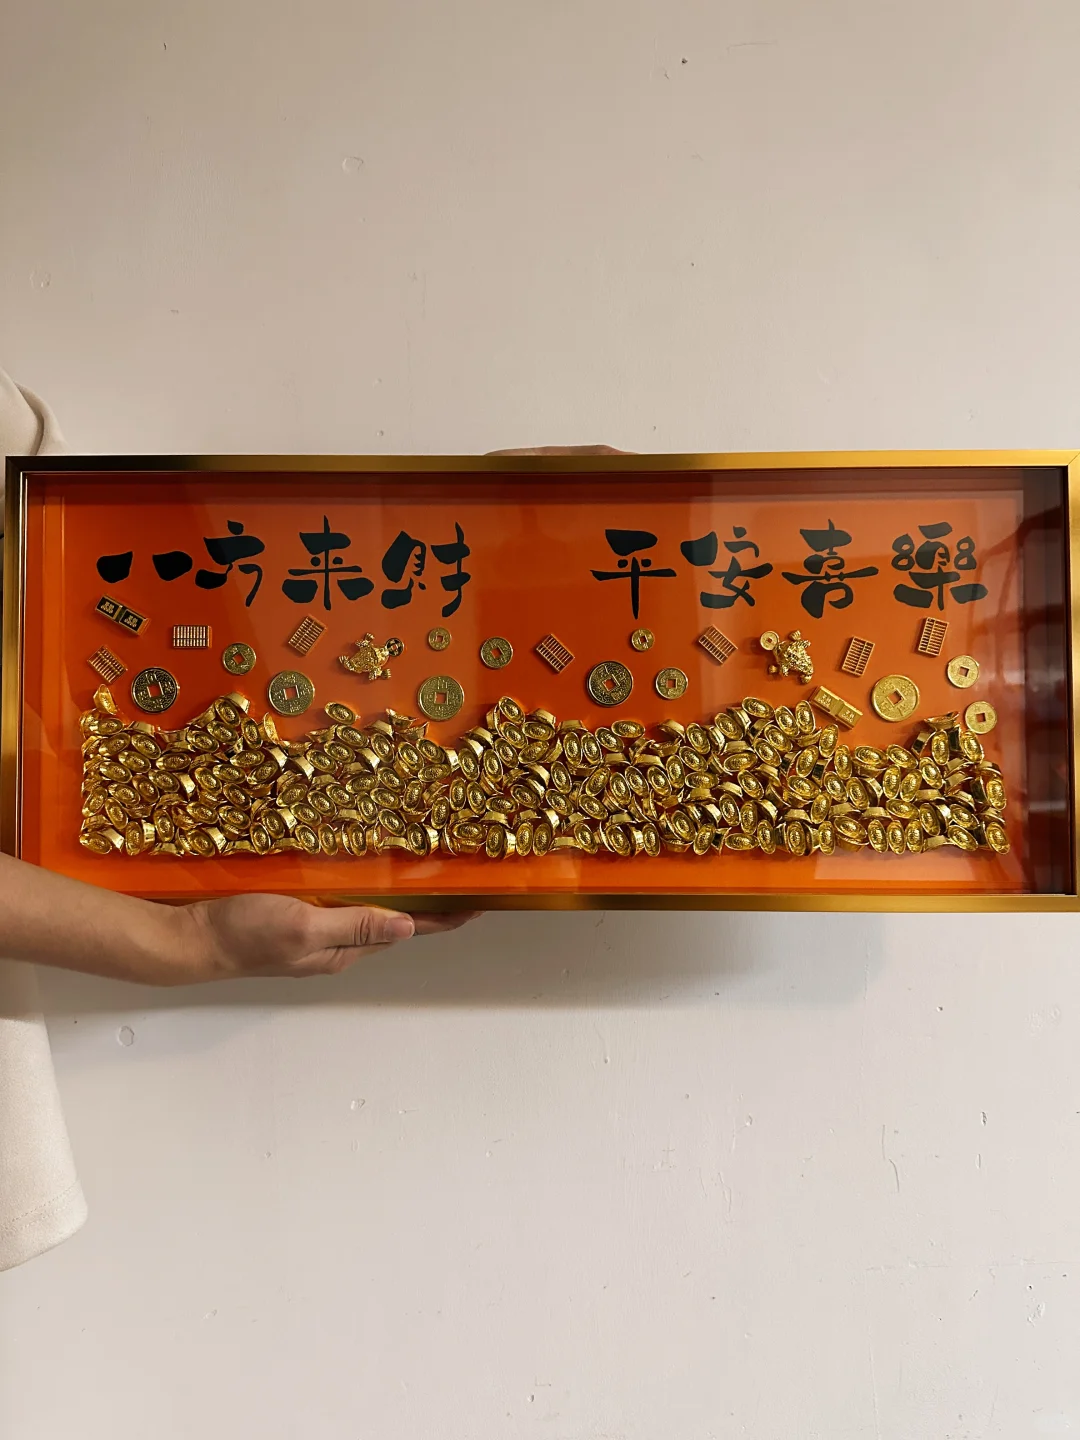 八方来财 平安喜樂